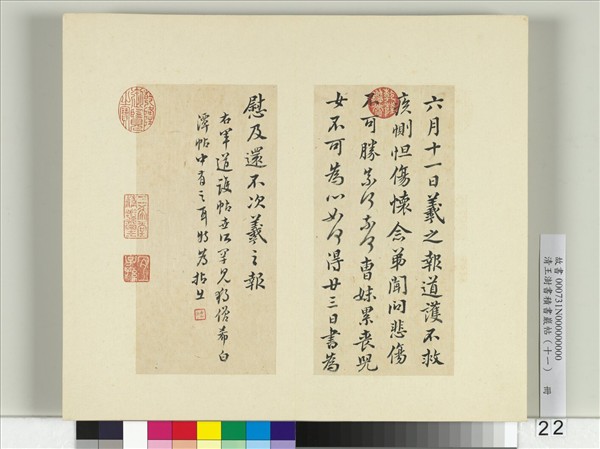 六月十一日羲之報道護不救
疾惻怛傷懷念弟聞問悲傷
不可勝奈何奈何曹妹累喪兒
女不可為心如何得廿三日書為
慰及還不次羲之報
右軍道護帖世所罕見獨僧希白
潭帖中有之耳特為拈出
故書000731N000000000
清王澍書積書巖帖（十一） 冊
22